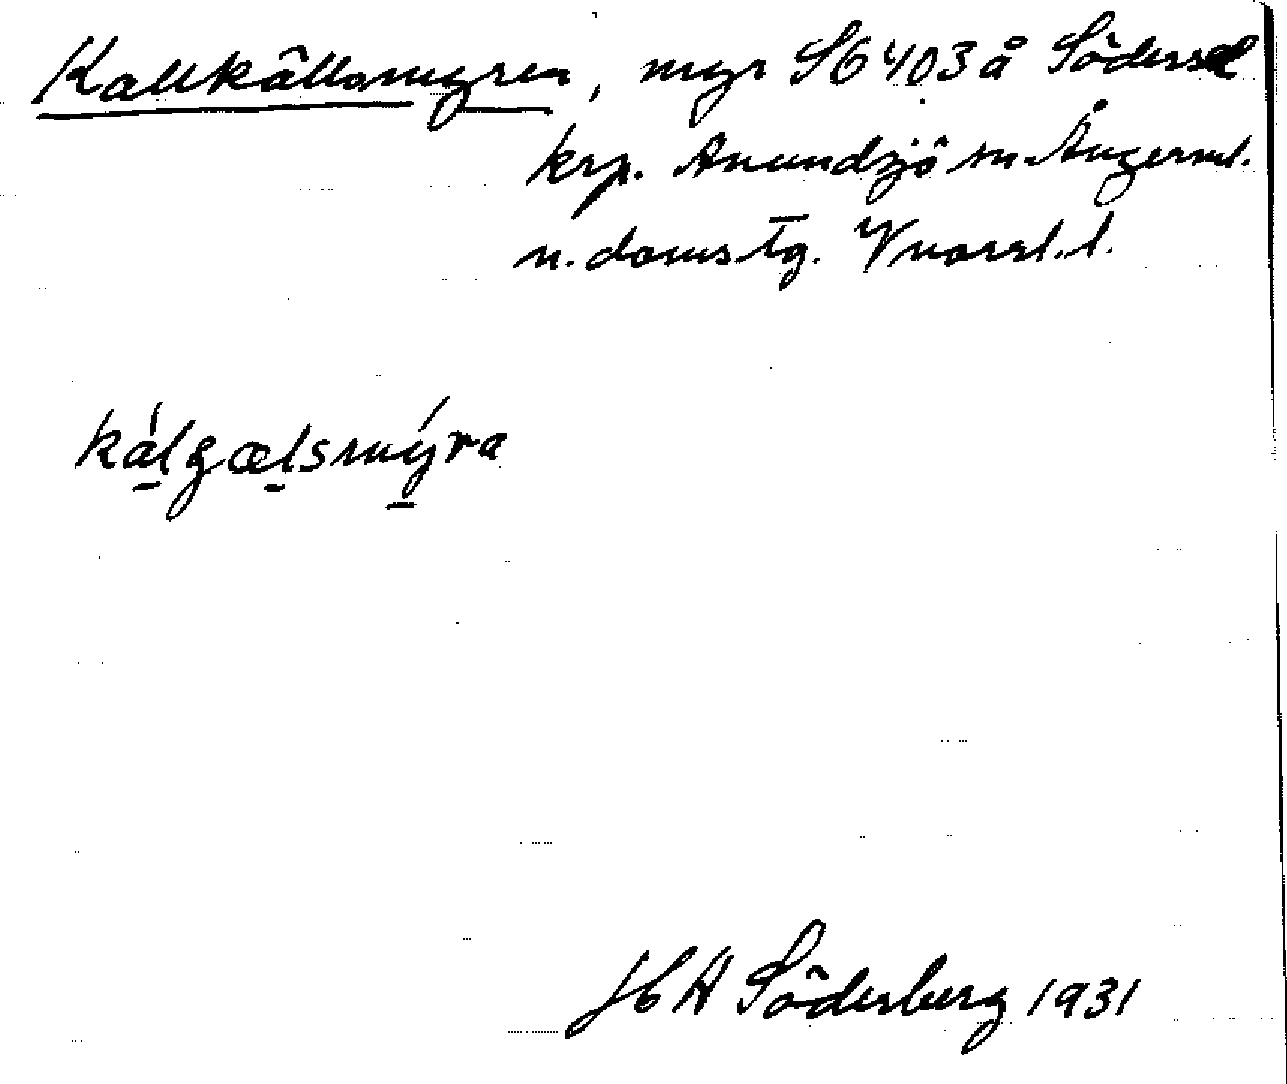 Kallkällsmyren, myr S6403å Södersel
krp. Anundsjö sn. Ångerml.
n. doms.tg. Vnorrl. l.
kálgælsmýra
H A Söderberg 1931